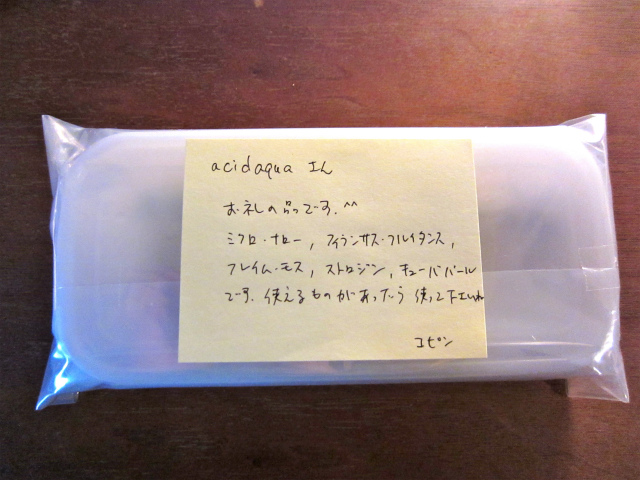 acidaqua さん
お礼の品です。^^
ミクロ・ナロー, フィランサス・フルイタンス,
フレイム・モス, ストロジン, キューバパール
です。使えるものがあったら 使って下さいね
コピン